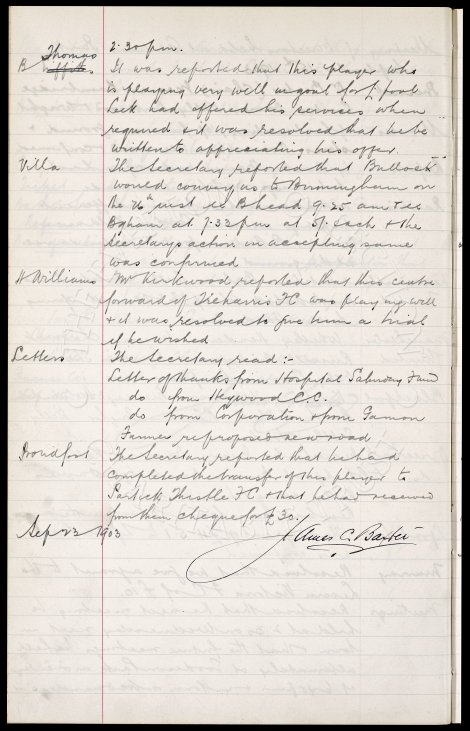 2.30 pm.
B Thomas It was reported that this player who
is playing very well in goal for Pool
Leek had offered his services when
required & it was resolved that he be
written to appreciating his offer.
Villa The Secretary reported that Bullock
would convey us to Birmingham on
the 26th inst ie B'head 9.25 am & ex
B'gham at 7.33 pm at 5/- each & the
Secretary's action in accepting same
was confirmed
H Williams Mr Kirkwood reported that this centre
forward of Treharris FC was playing well
& it was resolved to give him a trial
if he wished
Letters The Secretary read :-
Letter of thanks from Hospital Saturday Fund
do from Heywood C.C.
do from Corporation & from
re proposed new road
Broudfoot The Secretary reported that he had
completed the transfer of this player to
Partick Thistle FC & that he had received
from them cheque for £30.
Sep 23 1903 James C. Baxter